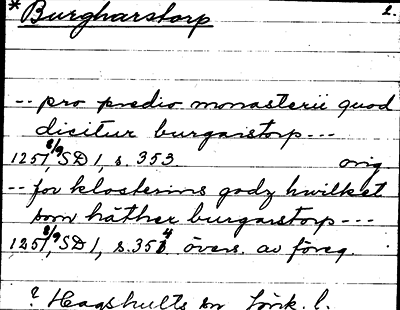 *Burgharstorp 2.
-- pro predio monasterii quod
dicitur burgarstorp ---
1251 8/9 SD 1, s. 353 orig
-- for klosterins godz hwilket
som häther burgarstorp ---
1251 8/9, SD 1, s. 354 övers. av föreg.
? Hagshults sn Jönk. l.